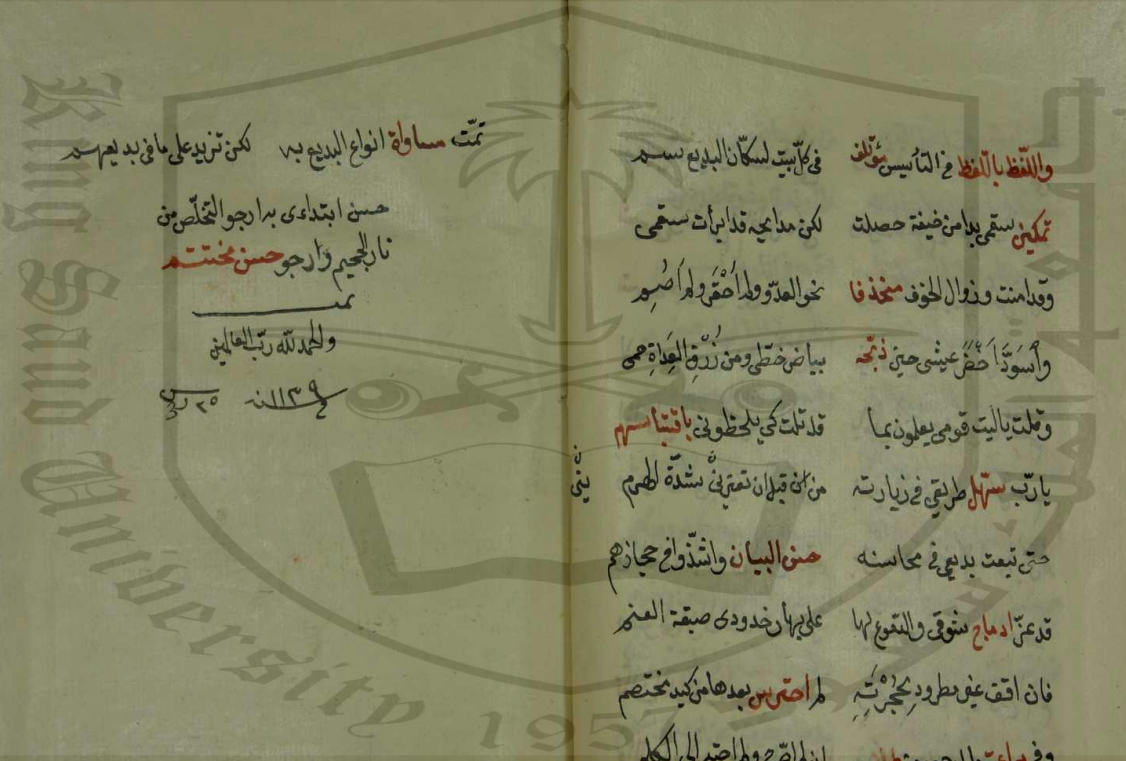 واللفظ باللفظ في التأسيس مؤتلف في كل بيت لسكان البديع سم
تمكين سقمي بدا من خيفة حصلت لكن مدايحه قد ابرأت سقمى
وقد امنت وزوال الخوف منحذفا نحو العدو ولم أحقر ولم أضم
وأسود اخضر عيشى حين دبجه بياض خطى ومن زرق العداة حمى
وقلت ياليت قومى يعلمون بما قد نلت كى يلحظونى باقتباسهم
يارب سهل طريقى فى زيارته من قبل ان تعترينى شدة الهرم
حتى تبعت بديعى فى محاسنه حسن البيان وانشد وافى حجازهم
قد عز ادماج شوقى والدموع لها على بهار خدودى صبغة العنم
فان اقف غير مطرود بحجرته لم احترس بعدها من كيد مختصم
تمت مساواة انواع البديع به لكن تزيد على ما فى بديعهم
حسن ابتداءى به ارجو التخلص من
نار الجحيم وارجو حسن مختتم
تمت
والحمد لله رب العالمين
١١٣٩
King Saud University
1957